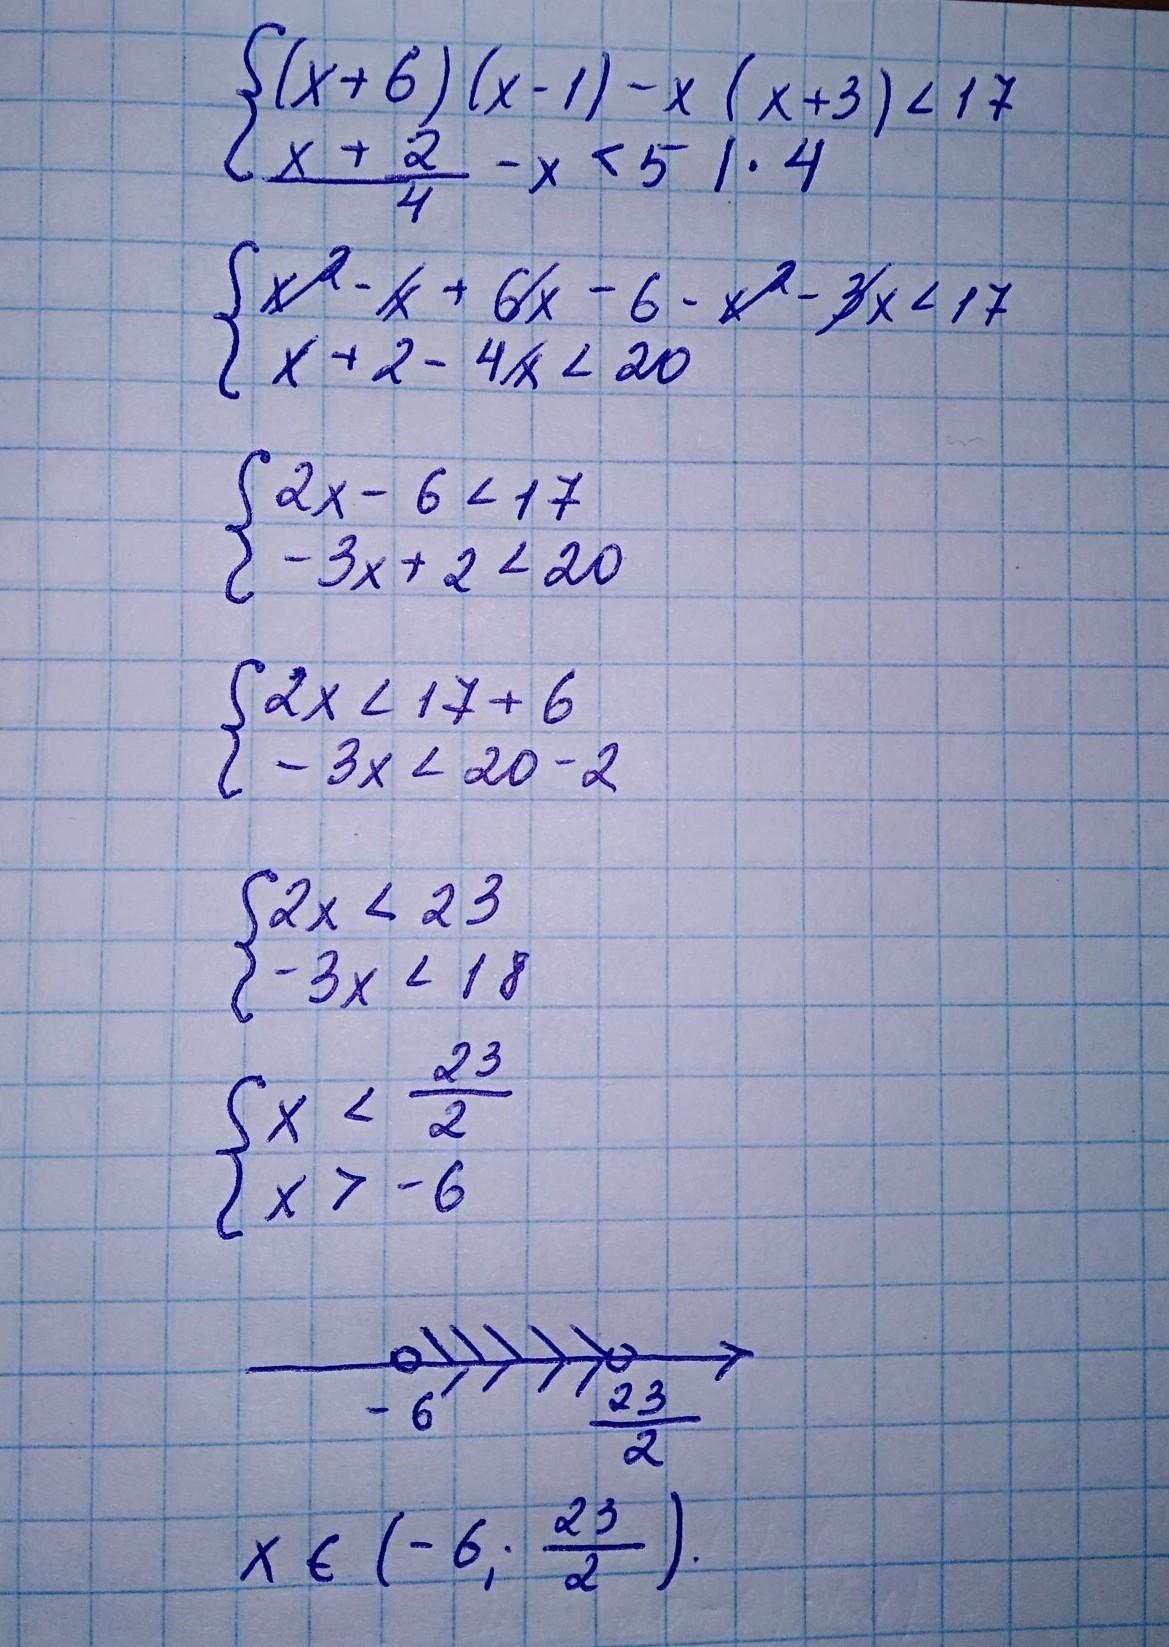 {(x+6)(x-1)-x(x+3)<17
{x+2/4 -x<5 |·4
{x²-x+6x-6-x²-3x<17
{x+2-4x<20
{2x-6<17
{-3x+2<20
{2x<17+6
{-3x<20-2
{2x<23
{-3x<18
{x<23/2
{x>-6
-6 23/2
x∈(-6; 23/2).